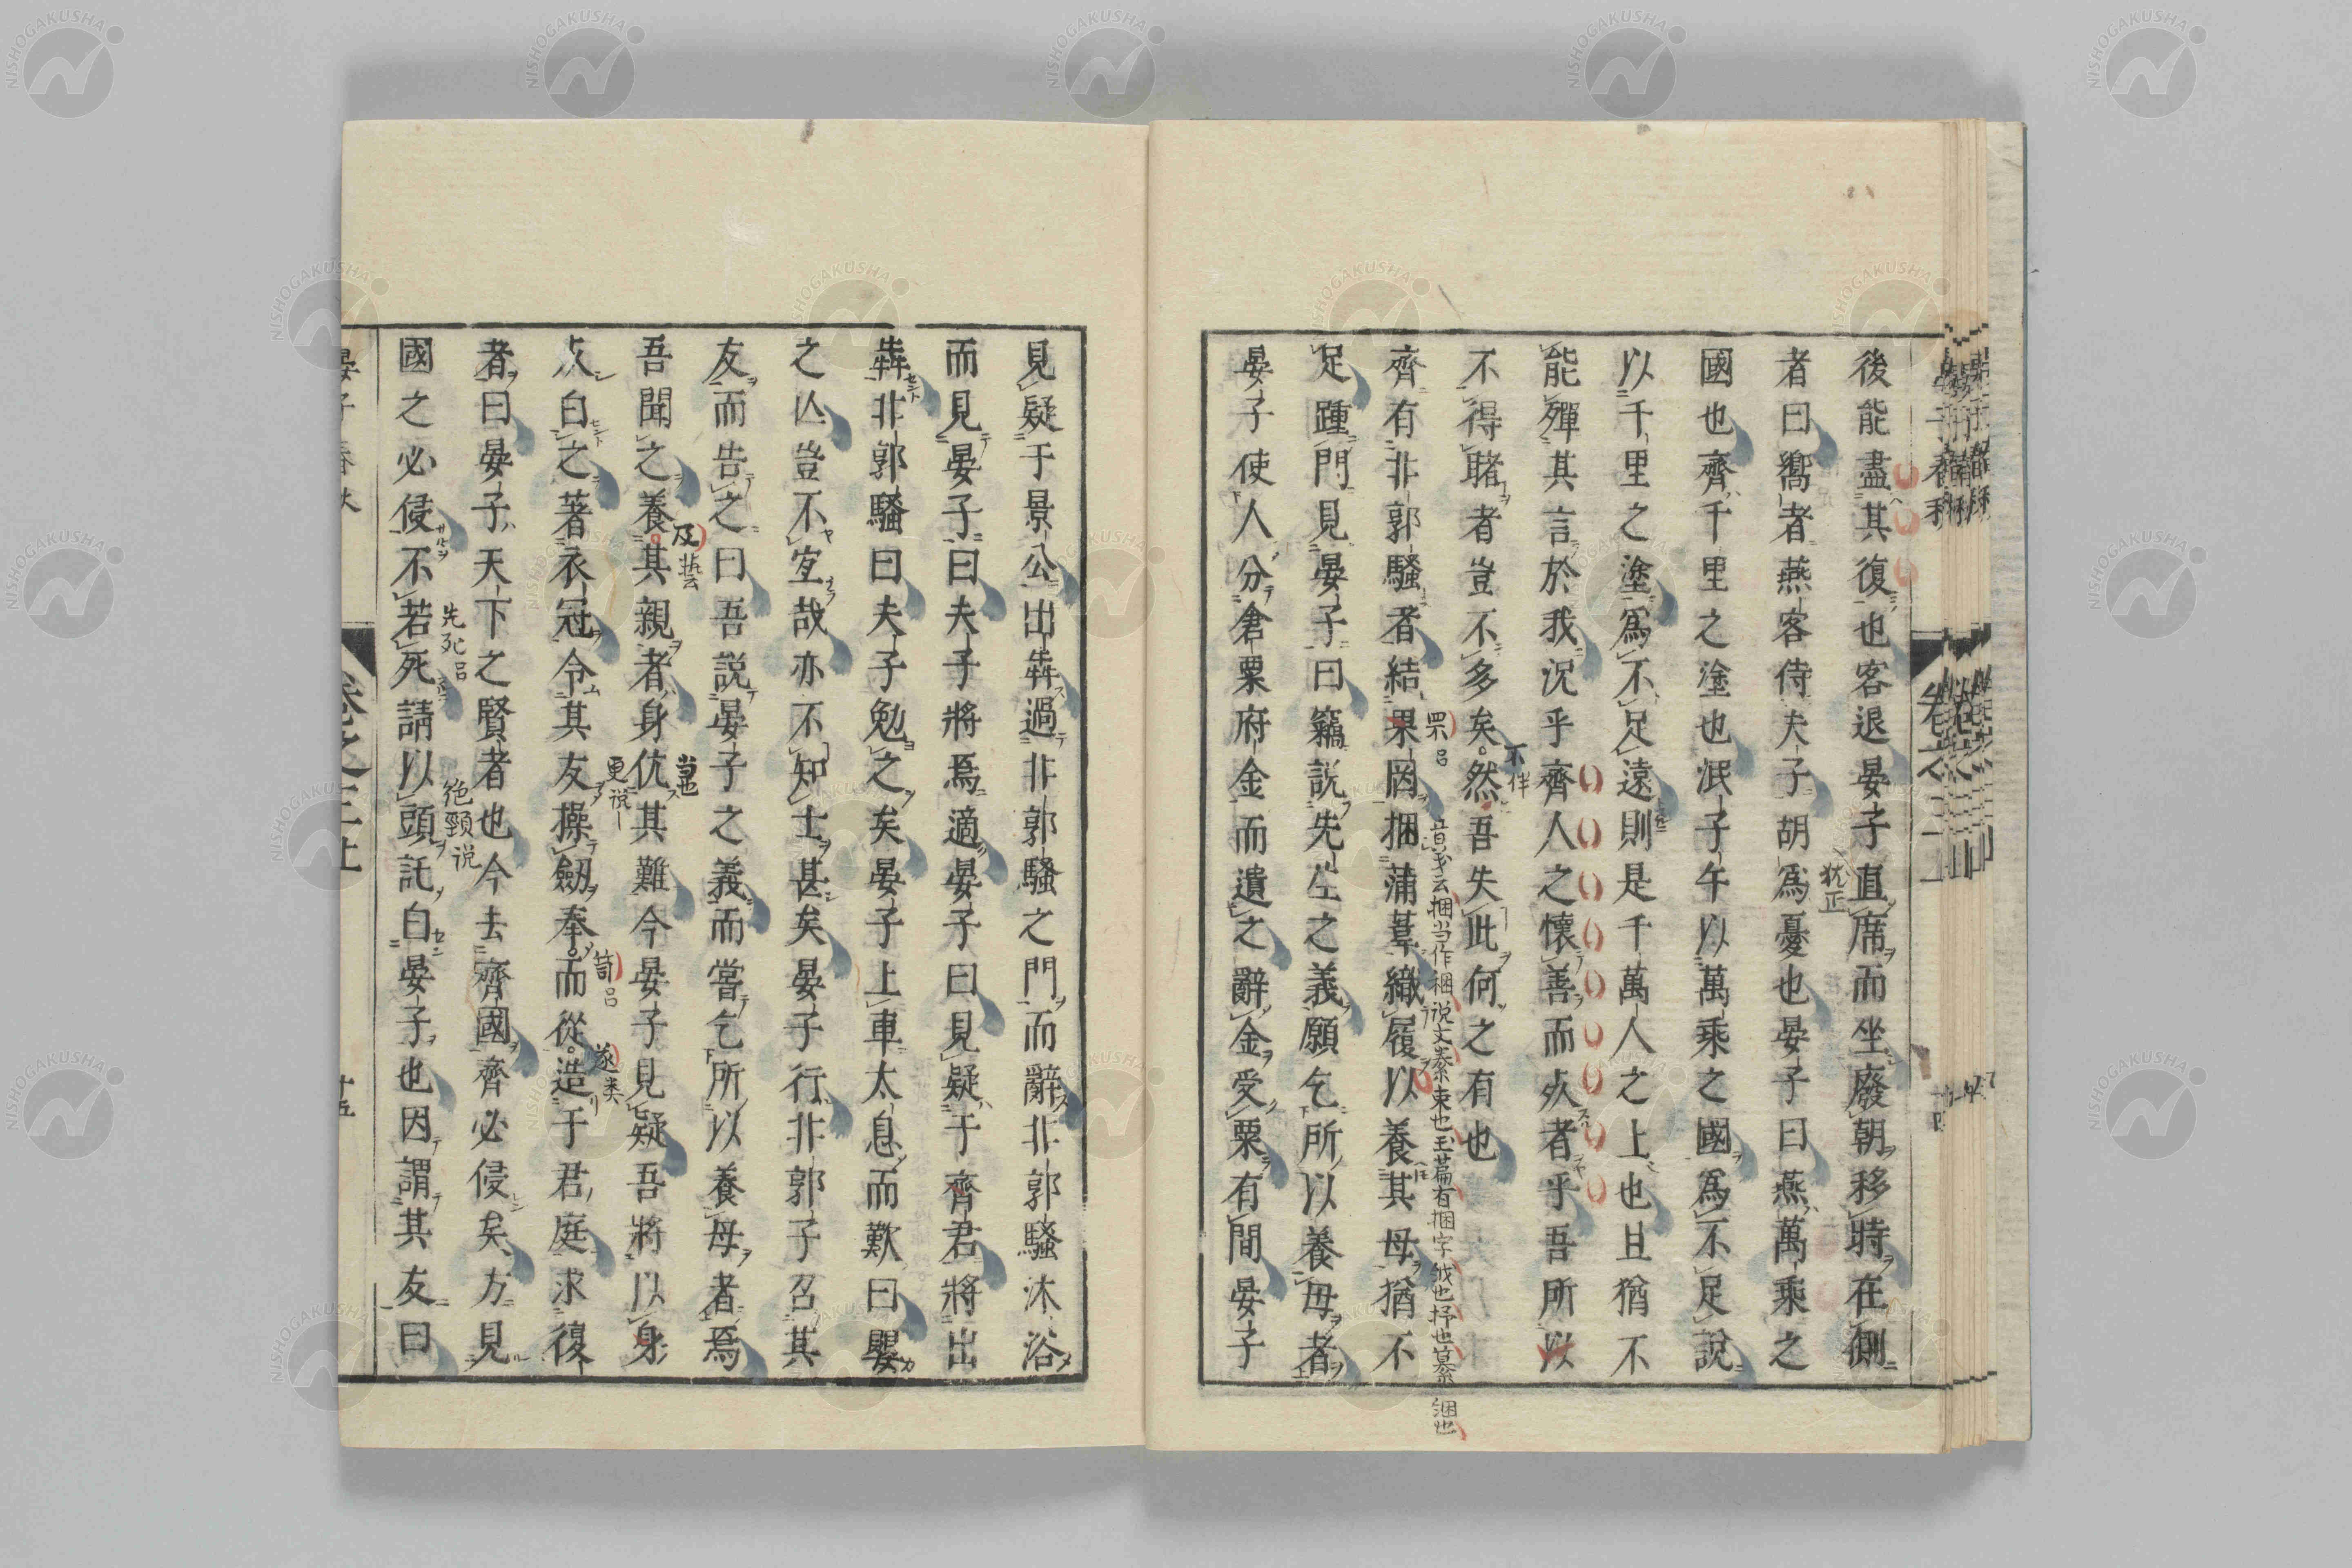 後能盡其復也客退晏子直席而坐廢朝移時在側
者曰嚮者燕客侍夫子胡爲憂也晏子曰燕萬乘之
國也齊千里之塗也泯子午以萬乘之國爲不足說
以千里之塗爲不足遠則是千萬人之上也且猶不
能殫其言於我况乎齊人之懷善而死者乎吾所以
不得睹者豈不多矣然吾失此何之有也
齊有北郭騷者結果罔捆蒲葦織履以養其母猶不
足踵門見晏子曰竊說先生之義願乞所以養母者
晏子使人分倉粟府金而遺之辭金受粟有間晏子
見疑于景公出犇過北郭騷之門而辭北郭騷沐浴
而見晏子曰夫子將焉適晏子曰見疑于齊君將出
犇北郭騷曰夫子勉之矣晏子上車太息而歎曰嬰
之亾豈不宜哉亦不知士甚矣晏子行北郭子召其
友而告之曰吾說晏子之義而嘗乞所以養母者焉
吾聞之養其親者身伉其難今晏子見疑吾將以身
死白之著衣冠令其友操劒奉而從造于君庭求復
者曰晏子天下之賢者也今去齊國齊必侵矣方見
國之必侵不若死請以頭託白晏子也因謂其友曰
晏子春秋
卷之三上
十五
犹正
不伴
罘呂
及
当也
更说
笥呂
先死呂
绝頸说
NISHOGAKUSHA